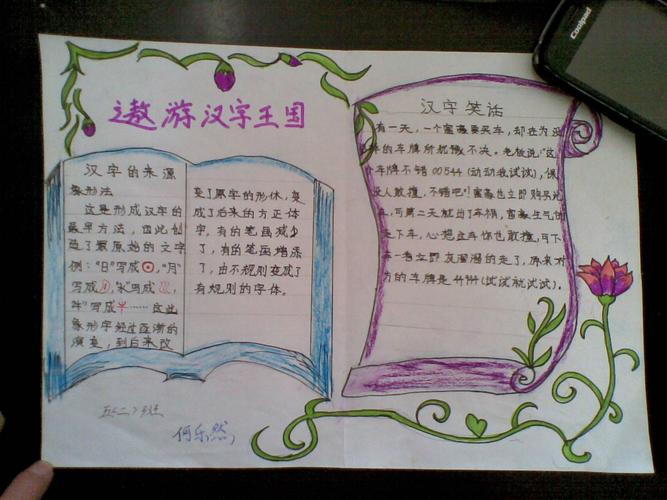 遨游汉字王国
汉字的来源
象形法
这是形成汉字的
最早方法，因此创
造了最原始的文字
例："日"写成 ，"月"
写成 ，"水"写成 ，
"牛"写成 ……这些
象形字经过逐渐的
演变，到后来改
变了原字的形体，变
成了后来的方正体
字，有的笔画减少
了，有的笔画增添
了，由不规则变成了
有规则的字体。
汉字笑话
有一天，一个富豪要买车，却在为选
车的车牌所犹豫不决。老板说："这
个车牌不错00544(动动我试试)，保
没人敢撞，不错吧！富豪也立即购买此
车，可第二天就出了车祸，富豪生气的
走下车，心想这车你也敢撞，可下
车一看立即灰溜溜的走了，原来对
方的车牌是44944(试试就试试)。
五(二)班
何乐然
Coolpad